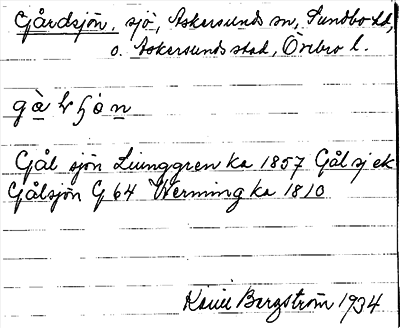 Gårdsjön, sjö, Askersunds sn, Sundbo hd,
o. Askersunds stad, Örebro l.
Gål sjön Liunggren ka 1857 Gålsj ek
Gålsjön G 64 Werming ka 1810
Bergström 1934